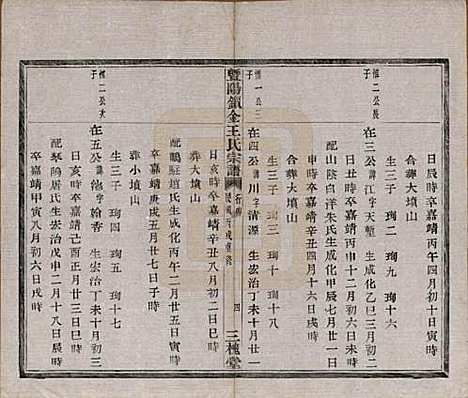 日辰時卒嘉靖丙午四月初十日寅時
合葬大墳山
生三子 珣二 珣九 珣十六
惟二公長子
在三公諱江字天塹 生成化乙巳三月初二
日丑時卒嘉靖丙申十二月初六日戌時
配山陰白洋朱氏生成化甲辰七月廿一日
申時卒嘉靖丙午四月初六日辰時
合葬大墳山
生三子 珣三 珣十 珣十八
惟一公三子
在四公諱川字清源 生宏治丁未十月廿一
暨陽鎖金王氏宗譜 四 三槐堂
日亥時卒嘉靖八月初二日巳時
葬大墳山
配鵶駐趙氏生成化丙午二月廿五日寅時
卒嘉靖庚戌五月廿七日子時
葬小墳山
生三子 珣四 珣五 珣十七
惟二公次子
在五公諱 字翰香 生宏治丁未十月初三
日亥時卒嘉靖己酉正月廿三日亥時
配琴塢屠氏生宏治戊申二月十八日辰時
卒嘉靖甲寅八月初六日戌時